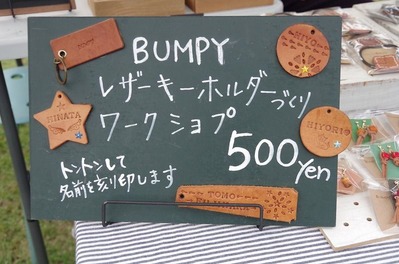 BUMPY
レザーキーホルダーづくり
ワークショプ
500yen
トントンして
名前を刻印します
HINATA
HIYORI
TOMO